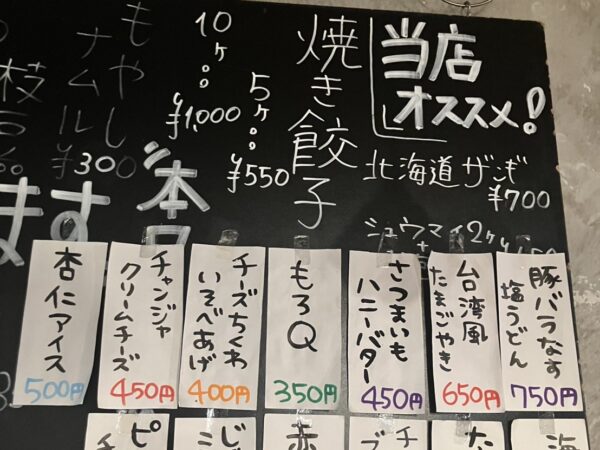 当店
オススメ!
北海道ザンギ
¥700
焼き餃子
5ヶ
¥550
10ヶ
¥1,000
もやし
ナムル
¥300
枝豆
ます
本日
シュウマイ2ヶ
豚バラなす
塩うどん
750円
台湾風
たまごやき
650円
さつまいも
ハニーバター
450円
もろQ
350円
チーズちくわ
いそべあげ
400円
チャンジャ
クリームチーズ
450円
杏仁アイス
500円
海
た
チ
赤
じ
ピ
チ